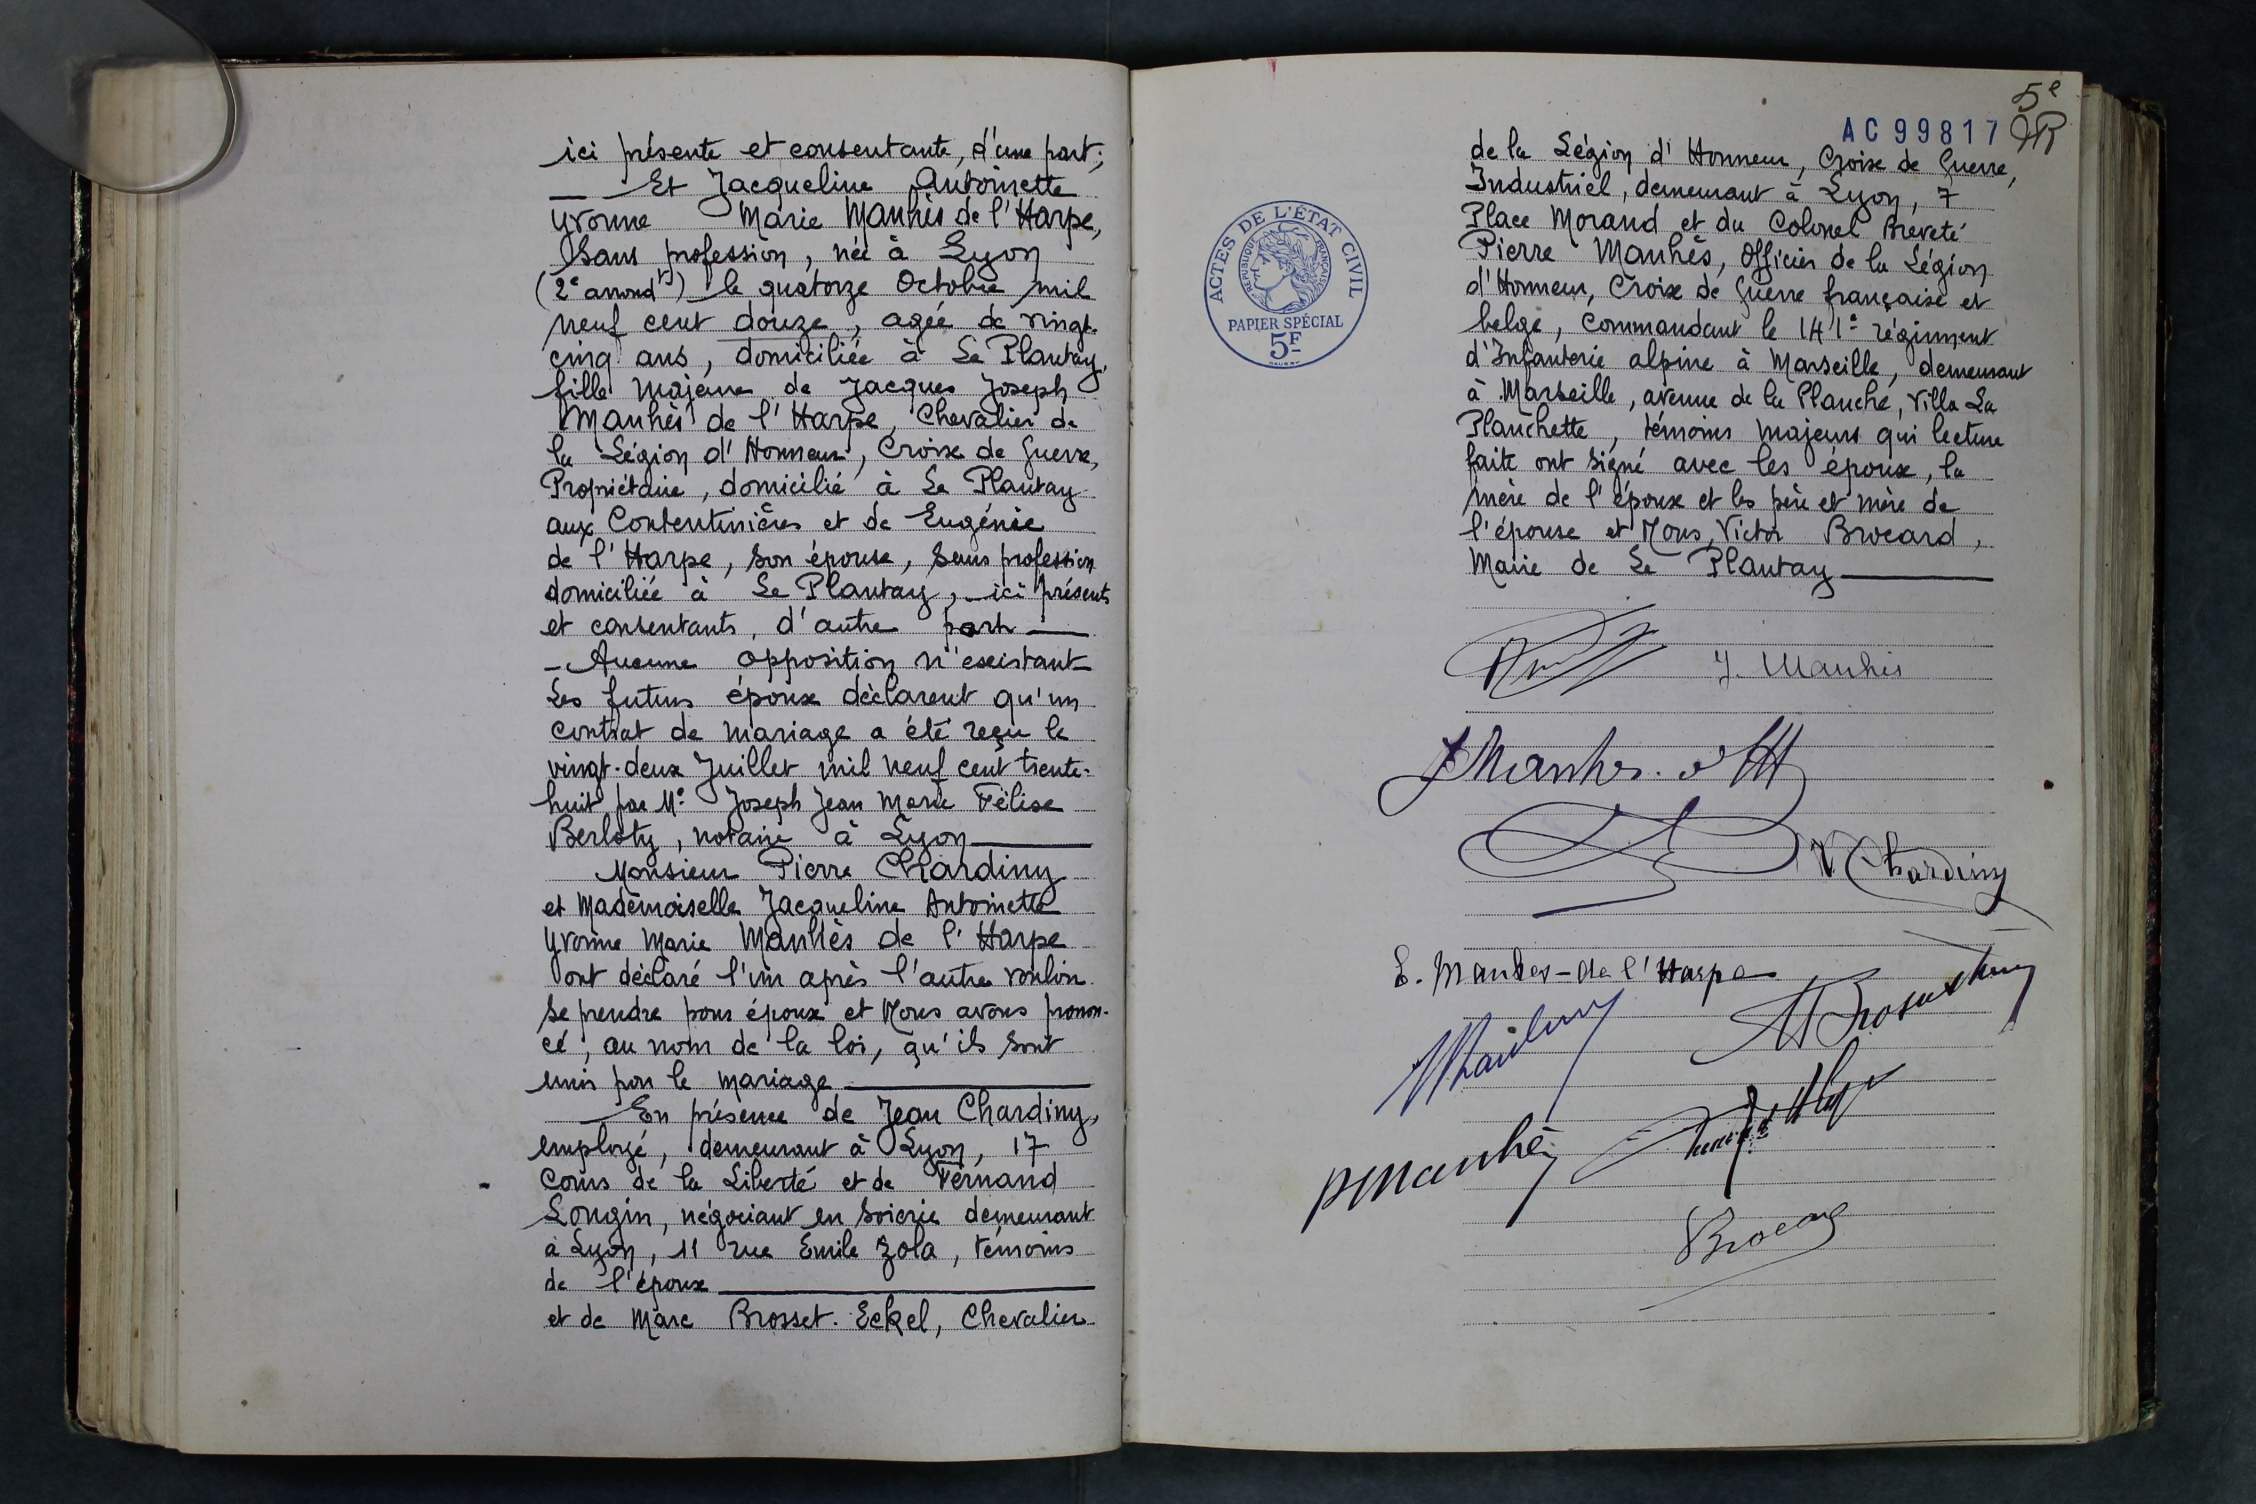 ici présente et consentante, d'une part;
Et Jacqueline Antoinette
Yvonne Marie Manhès de l'Harpe,
Sans profession, née à Lyon
(2e arrondt) le quatorze Octobre mil
neuf cent douze, agée de vingt-
cinq ans, domiciliée à Le Plantay,
fille majeure de Jacques Joseph
Manhès de l'Harpe, Chevalier de
la Légion d'Honneur, Croix de Guerre,
Propriétaire, domicilié à Le Plantay
aux Contentinières et de Eugénie
de l'Harpe, son épouse, Sans profession
domiciliée à Le Plantay, ici présents
et consentants, d'autre part
- Aucune opposition n'existant
Les futurs époux déclarent qu'un
contrat de mariage a été reçu le
vingt-deux Juillet mil neuf cent trente-
huit par Me Joseph Jean Marie Félix
Berloty, notaire à Lyon
Monsieur Pierre Chardiny
et Mademoiselle Jacqueline Antoinette
Yvonne Marie Manhès de l'Harpe
ont déclaré l'un après l'autre vouloir
se prendre pour époux et Nous avons pronon-
cé, au nom de la loi, qu'ils sont
unis par le mariage
En présence de Jean Chardiny,
employé, demeurant à Lyon, 17
Cours de la Liberté et de Fernand
Longin, négociant en Soierie demeurant
à Lyon, 11 rue Emile Zola, témoins
de l'époux
et de Marc Brosset-Eckel, Chevalier
5e
AC99817
de la Légion d'Honneur, Croix de Guerre,
Industriel, demeurant à Lyon, 7
Place Morand et du Colonel Breveté
Pierre Manhès, Officier de la Légion
d'Honneur, Croix de Guerre française et
belge, commandant le 141e régiment
d'Infanterie alpine à Marseille, demeurant
à Marseille, avenue de la Planche, Villa La
Planchette, témoins majeurs qui lecture
faite ont signé avec les époux, la
mère de l'époux et les père et mère de
l'épouse et Nous, Victor Brocard,
Maire de Le Plantay
ACTES DE L'ÉTAT CIVIL
RÉPUBLIQUE FRANÇAISE
PAPIER SPÉCIAL
5F
J. Manhès
J Manhes
V Chardiny
E. Manhes-de l'Harpe
P Manhès
VBrocard